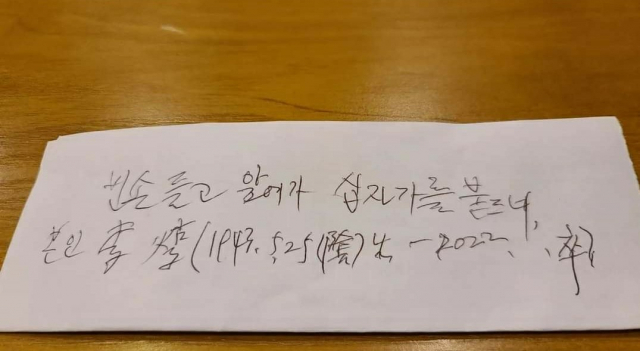 빈손 들고 앞에가 십자가를 붙드네,
본인 李 (1943. 5.25(陰)生 - 2022. . 卒)